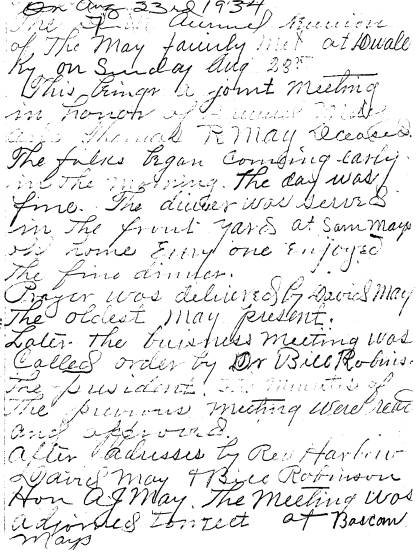 On Aug 23rd 1934
The Annual reunion
of The May family Met at Dwale
Ky on Sunday Aug 23rd
This being a joint Meeting
in honor of
Thomas R May Deceased.
The folks began Comeing early
in The morning. The day was
fine. The dinner was served
in the front yard at Sam Mays
old home Every one Enjoyed
the fine dinner.
Prayer was delivered by David May
The oldest May present.
Later the business Meeting was
Called order by Dr Bill Robins.
The president. The Minutes of
The previous meeting were read
and approved
After adresses by Rev
David May & Bill Robinson
Hon A J May. The Meeting was
adjorned to meet at Bascom
Mays